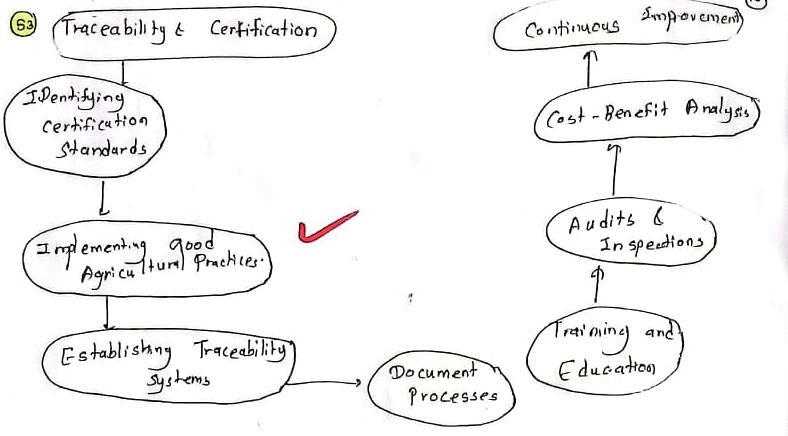 53
Traceability & Certification
IDentifying
Certification
Standards
Implementing good
Agricultural Practices.
Establishing Traceability
Systems
Document
Processes
Training and
Education
Audits &
Inspections
Cost-Benefit Analysis
Continuous Improvement